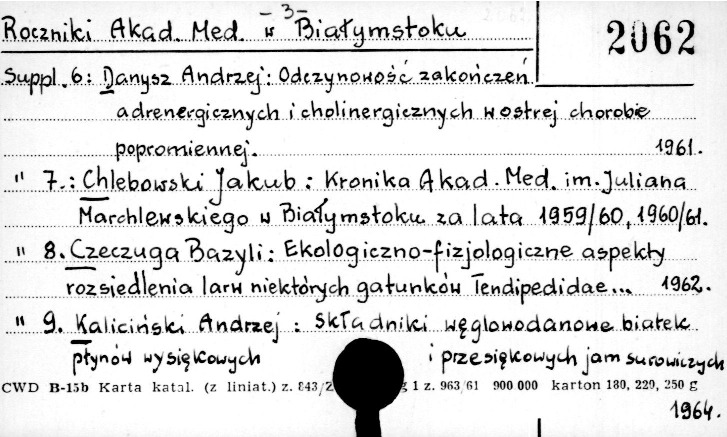 - 3 -
Roczniki Akad. Med. w Białymstoku
2062
Suppl. 6: Danysz Andrzej: Odczynowość zakończeń
adrenergicznych i cholinergicznych w ostrej chorobie
popromiennej. 1961.
" 7.: Chlebowski Jakub: Kronika Akad. Med. im. Juliana
Marchlewskiego w Białymstoku za lata 1959/60, 1960/61.
" 8. Czeczuga Bazyli: Ekologiczno-fizjologiczne aspekty
rozsiedlenia larw niektórych gatunków Tendipedidae... 1962.
" 9. Kaliciński Andrzej: Składniki węglowodanowe białek
płynów wysiękowych i przesiękowych jam surowiczych
CWD B-15b Karta katal. (z liniat.) z. 843/Z g 1 z. 963/61 900 000 karton 180, 220, 250 g
1964.